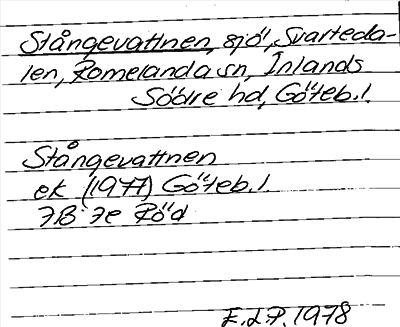 Stångevattnen, sjö, Svarteda-
len, Romelanda sn, Inlands
Södre hd, Göteb.l.
Stångevattnen
ek (1977) Göteb.l.
7B 7e Röd
E.L.P. 1978